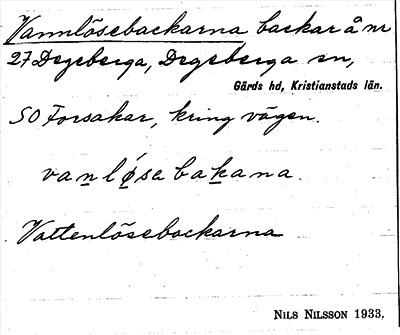 Vannlösebackarna backar å nr
27 Degeberga, Degeberga sn,
Gärds hd, Kristianstads län.
SO Forsakar, kring vägen.
va n l ǿ sa ba k a n a.
Vattenlösebackarna
NILS NILSSON 1933.